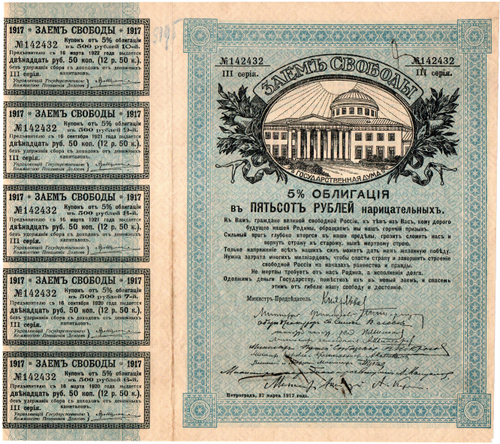 1917 * ЗАЕМ СВОБОДЫ * 1917
№142432
III серія.
Купонъ отъ 5% облигаціи
въ 500 рублей 10-й.
Предъявителю съ 16 марта 1922 года выдается
двѣнадцать руб. 50 коп. (12 р. 50 к.).
безъ удержанія сбора съ доходовъ отъ денежныхъ
капиталовъ.
Управляющій Государственною
Коммиссіею Погашенія Долговъ
1917 * ЗАЕМ СВОБОДЫ * 1917
№142432
III серія.
Купонъ отъ 5% облигаціи
въ 500 рублей 9-й.
Предъявителю съ 16 сентября 1921 года выдается
двѣнадцать руб. 50 коп. (12 р. 50 к.).
безъ удержанія сбора съ доходовъ отъ денежныхъ
капиталовъ.
Управляющій Государственною
Коммиссіею Погашенія Долговъ
1917 * ЗАЕМ СВОБОДЫ * 1917
№142432
III серія.
Купонъ отъ 5% облигаціи
въ 500 рублей 8-й.
Предъявителю съ 16 марта 1921 года выдается
двѣнадцать руб. 50 коп. (12 р. 50 к.).
безъ удержанія сбора съ доходовъ отъ денежныхъ
капиталовъ.
Управляющій Государственною
Коммиссіею Погашенія Долговъ
1917 * ЗАЕМ СВОБОДЫ * 1917
№142432
III серія.
Купонъ отъ 5% облигаціи
въ 500 рублей 7-й.
Предъявителю съ 16 сентября 1920 года выдается
двѣнадцать руб. 50 коп. (12 р. 50 к.).
безъ удержанія сбора съ доходовъ отъ денежныхъ
капиталовъ.
Управляющій Государственною
Коммиссіею Погашенія Долговъ
1917 * ЗАЕМ СВОБОДЫ * 1917
№142432
III серія.
Купонъ отъ 5% облигаціи
въ 500 рублей 6-й.
Предъявителю съ 16 марта 1920 года выдается
двѣнадцать руб. 50 коп. (12 р. 50 к.).
безъ удержанія сбора съ доходовъ отъ денежныхъ
капиталовъ.
Управляющій Государственною
Коммиссіею Погашенія Долговъ
№142432 №142432
III серія. III серія.
ЗАЕМЪ СВОБОДЫ
ГОСУДАРСТВЕННАЯ ДУМА
5% ОБЛИГАЦІЯ
въ ПЯТЬСОТЪ РУБЛЕЙ нарицательныхъ.
Къ Вамъ, граждане великой свободной Россіи, къ тѣмъ изъ Васъ, кому дорого
будущее нашей Родины, обращаемъ мы нашъ горячій призывъ.
Сильный врагъ глубоко вторгся въ наши предѣлы, грозитъ сломить насъ и
вернуть страну къ старому, нынѣ мертвому строю.
Только напряженіе всѣхъ нашихъ силъ можетъ дать намъ желанную побѣду.
Нужна затрата многихъ милліардовъ, чтобы спасти страну и завершить строеніе
свободной Россіи на началахъ равенства и правды.
Не жертвы требуетъ отъ насъ Родина, а исполненія долга.
Одолжимъ деньги Государству, помѣстивъ ихъ въ новый заемъ, и спасемъ
этимъ отъ гибели нашу свободу и достояніе.
Министръ-Предсѣдатель
Петроградъ, 27 марта 1917 года.